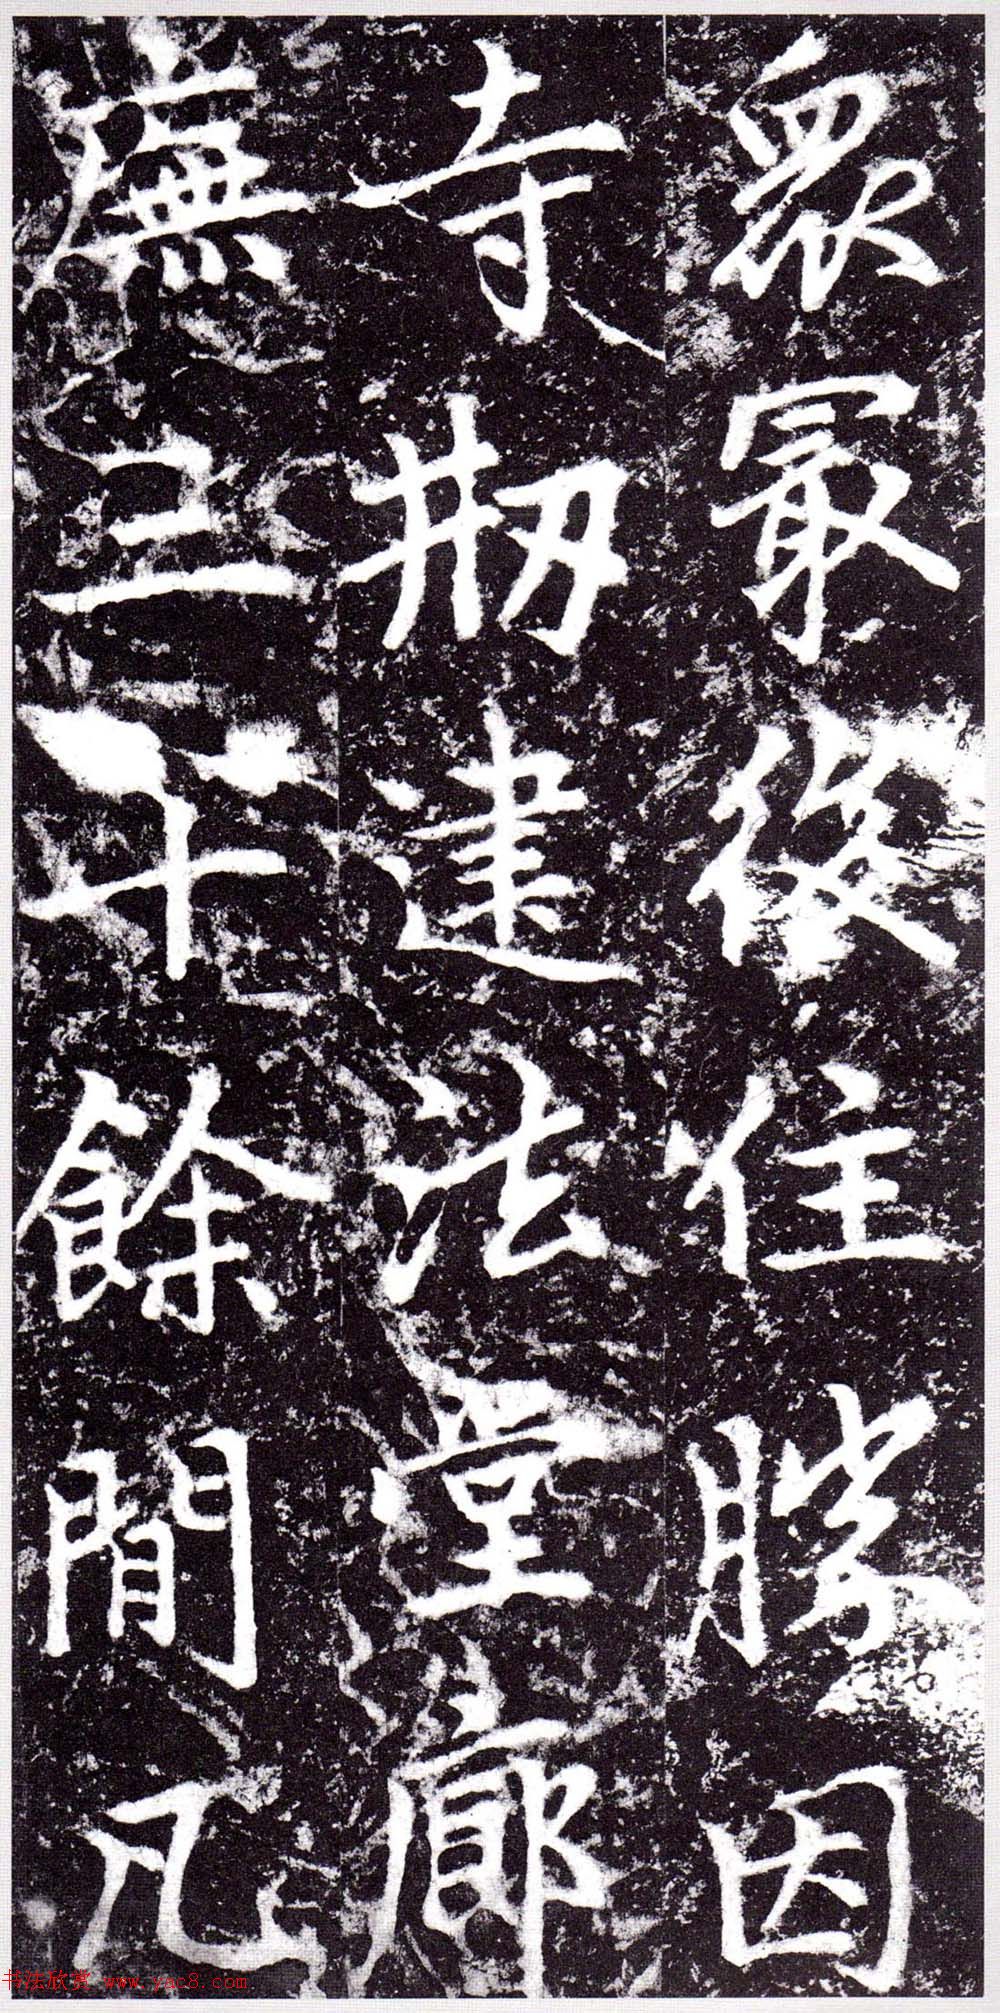 眾冣後住勝因
寺剏建法堂廊
廡三十餘間凡
书法欣赏 www.yac8.com